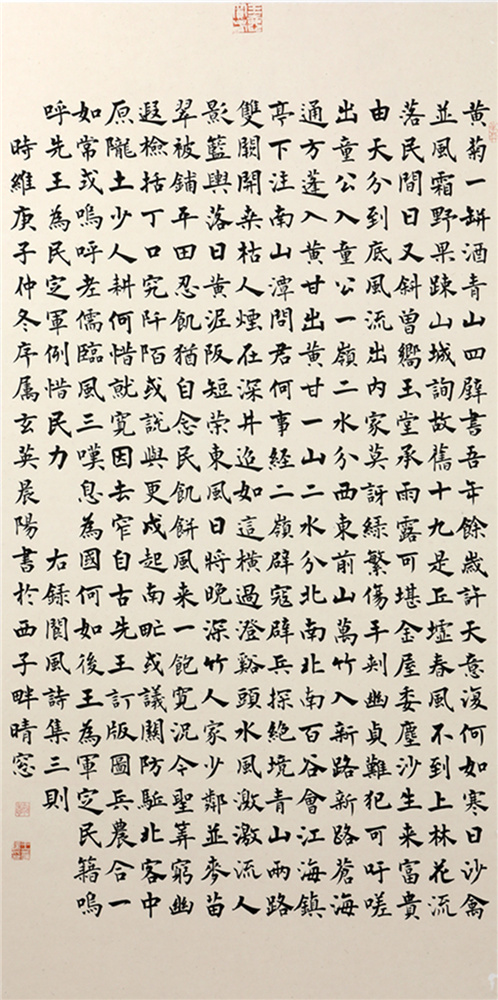 黄菊一缾酒青山四壁書吾年餘歲許天意復何如寒日沙禽
並風霜野果踈山城詢故舊十九是丘墟春風不到上林花流
落民間日又斜曾嚮玉堂承雨露可堪金屋委塵沙生来富貴
由天分到底風流出内家莫訝緑繁傷手刺幽貞難犯可吁嗟
出童公入童公一嶺二水分西東前山萬竹入新路新路蒼海
通方蓬入黄甘出黄甘一山二水分北南北南百谷會江海鎮
亭下注南山潭問君何事経二嶺辟寇辟兵探絶境青山兩路
雙闕開桒枯人煙在深井迨如這橫過澄谿頭水風激激流人
影籃輿落日黄泥阪短荣東風日將晚深竹人家少鄰並麥苗
翠被鋪平田忍飢猶自念民飢餅風来一飽寬況今聖筭窮幽
遐檢括丁口究阡陌或說與更戍起南畝或議關防駈北客中
原隴土少人耕何惜就寬因去窄自古先王訂版圖兵農合一
如常或嗚呼老儒臨風三嘆息為國何如後王為軍定民籍嗚
呼先王為民定軍例惜民力 右録閬風詩集三則
時維庚子仲冬序属玄英晨陽書於西子畔晴窓